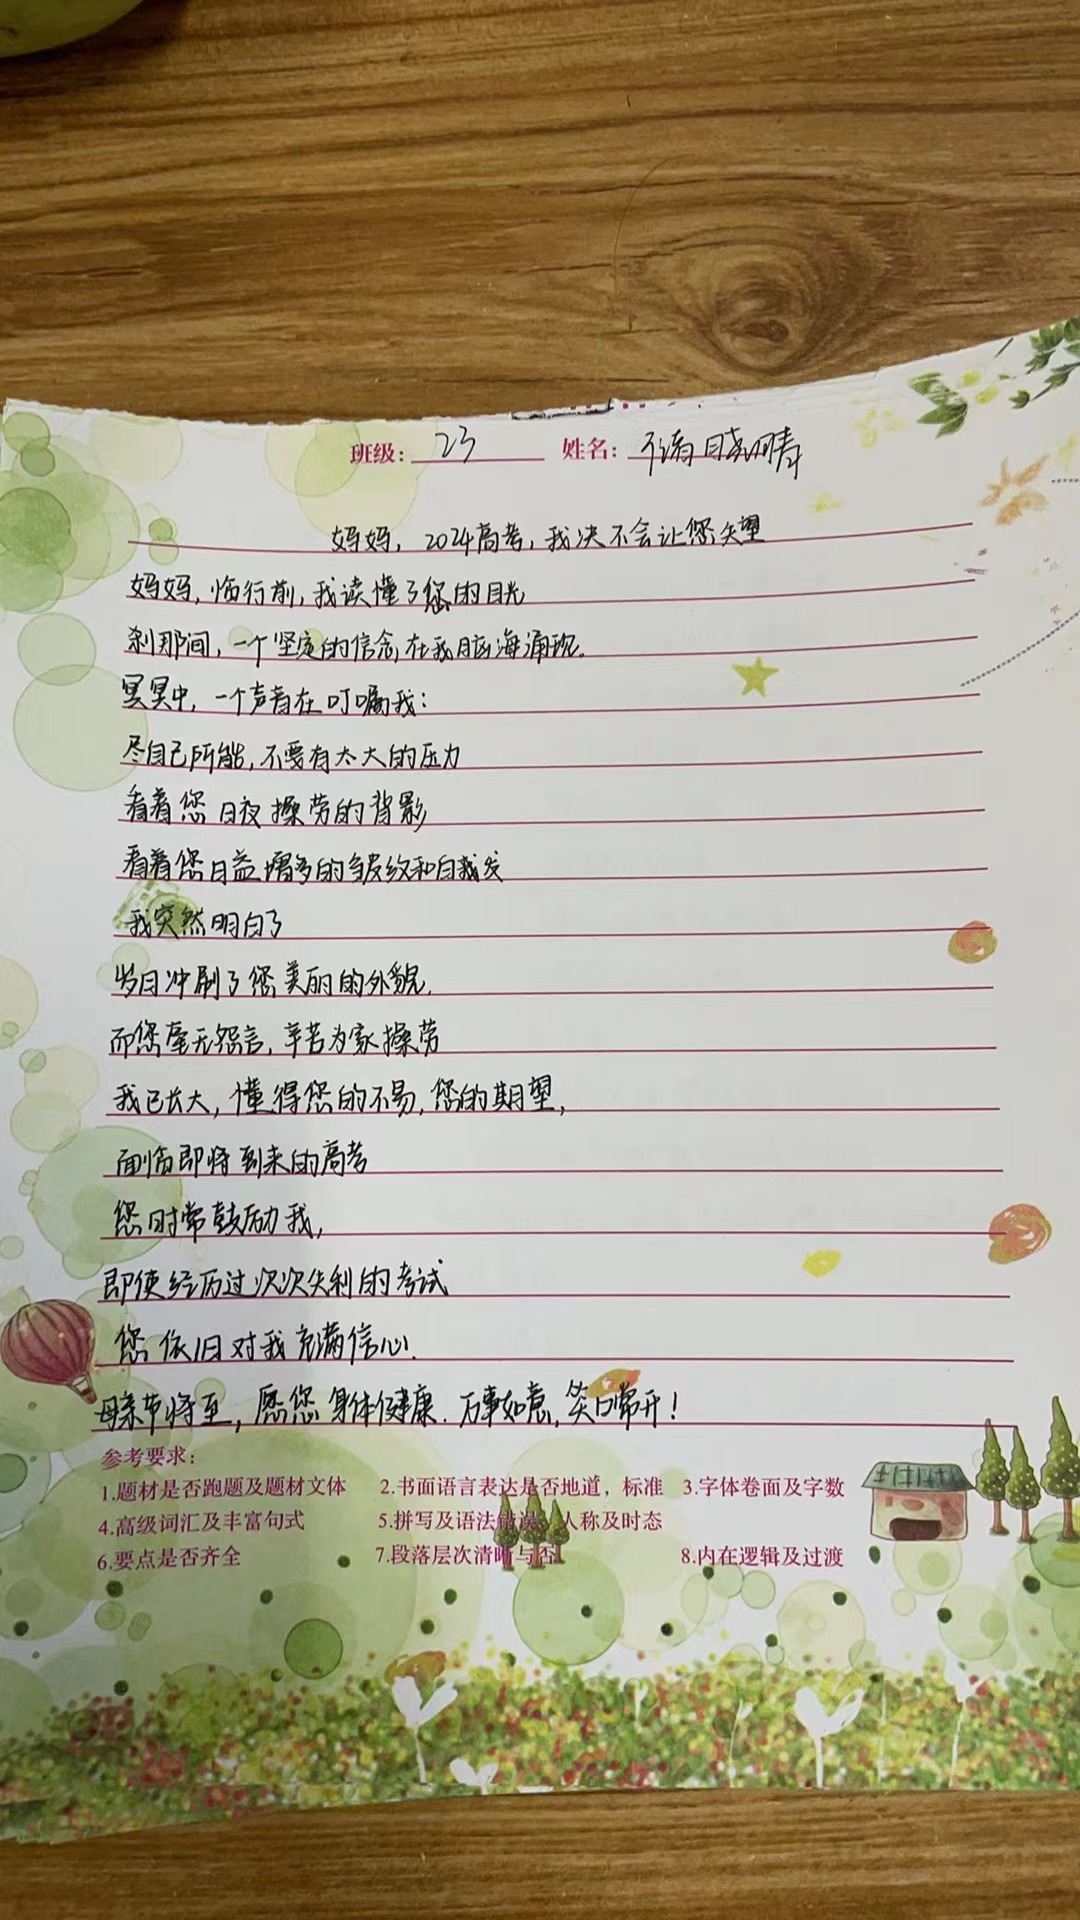 班级: 23 姓名: 褚晓晴
妈妈，2024高考，我决不会让您失望
妈妈，临行前，我读懂了您的目光
刹那间，一个坚定的信念在我脑海涌现。
冥冥中，一个声音在叮嘱我：
尽自己所能，不要有太大的压力
看着您日夜操劳的背影
看着您日益增多的皱纹和白发
我突然明白了
岁月冲刷了您美丽的外貌，
而您毫无怨言，辛苦为家操劳
我已长大，懂得您的不易，您的期望，
面临即将到来的高考
您时常鼓励我，
即使经历过次次失利的考试
您依旧对我充满信心！
母亲节将至，愿您身体健康．万事如意，笑口常开！
参考要求：
1.题材是否跑题及题材文体 2.书面语言表达是否地道，标准 3.字体卷面及字数
4.高级词汇及丰富句式 5.拼写及语法错误、人称及时态
6.要点是否齐全 7.段落层次清晰与否 8.内在逻辑及过渡